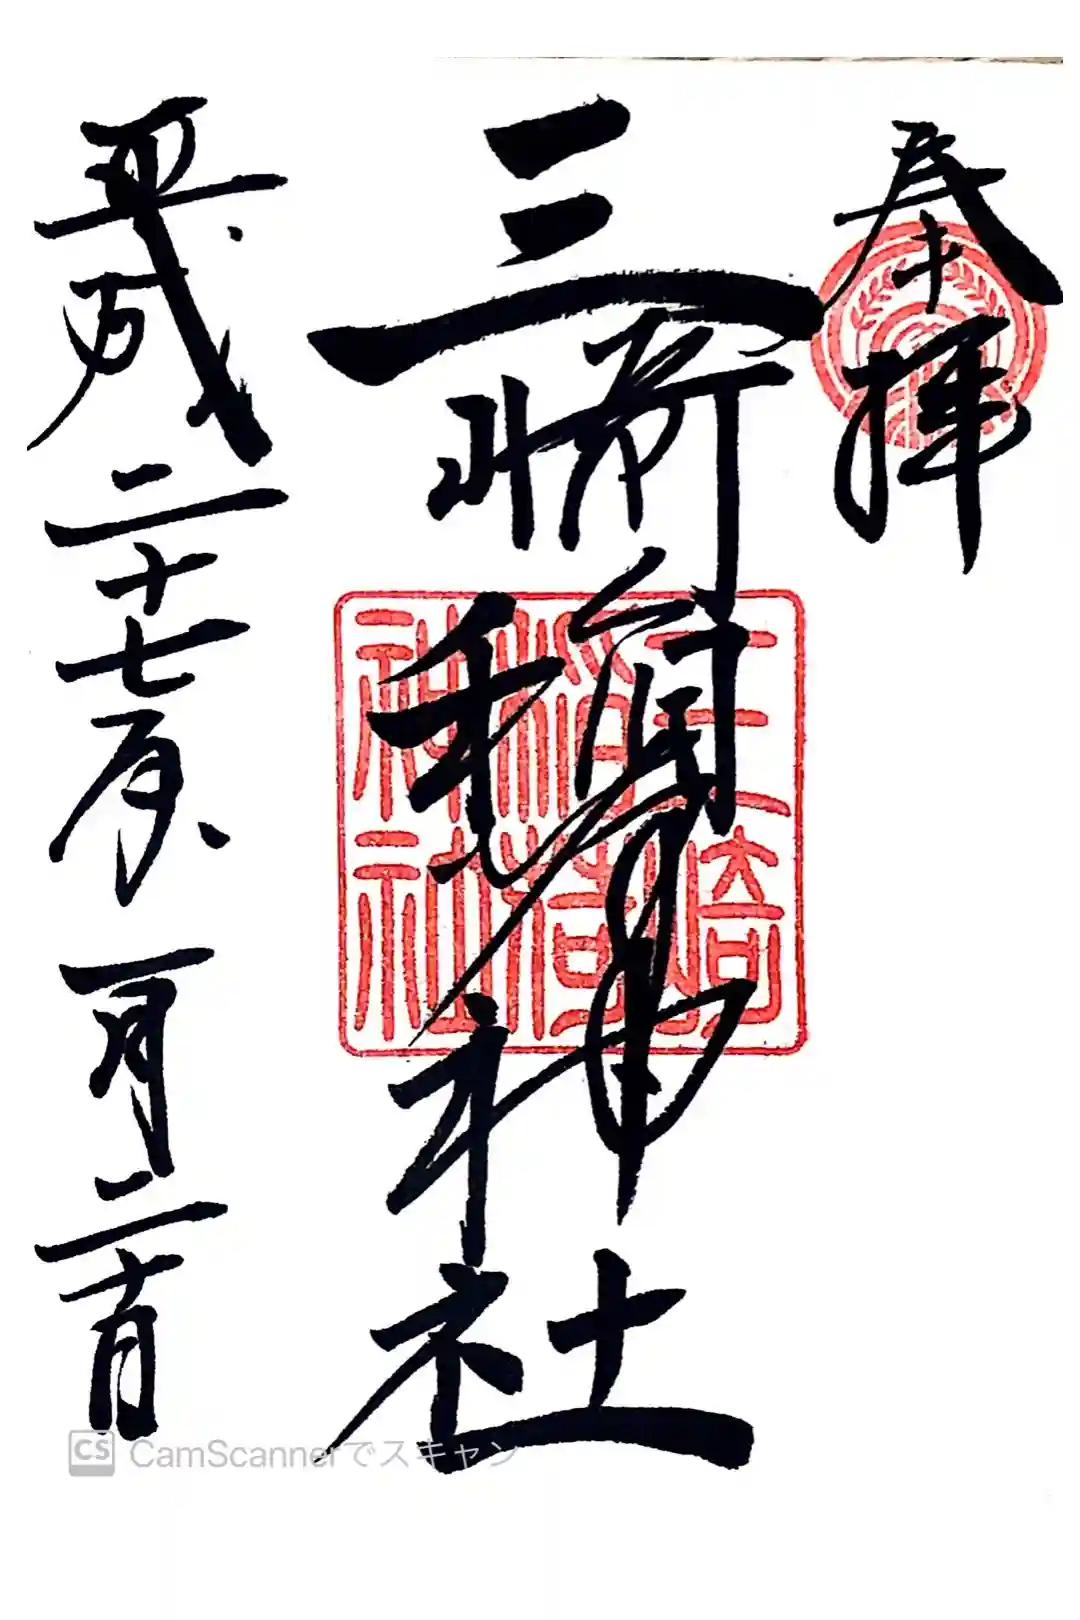 奉拝
三崎稲荷神社
三崎
稲荷
神社
平成二十七年一月二十日
CS CamScannerでスキャン